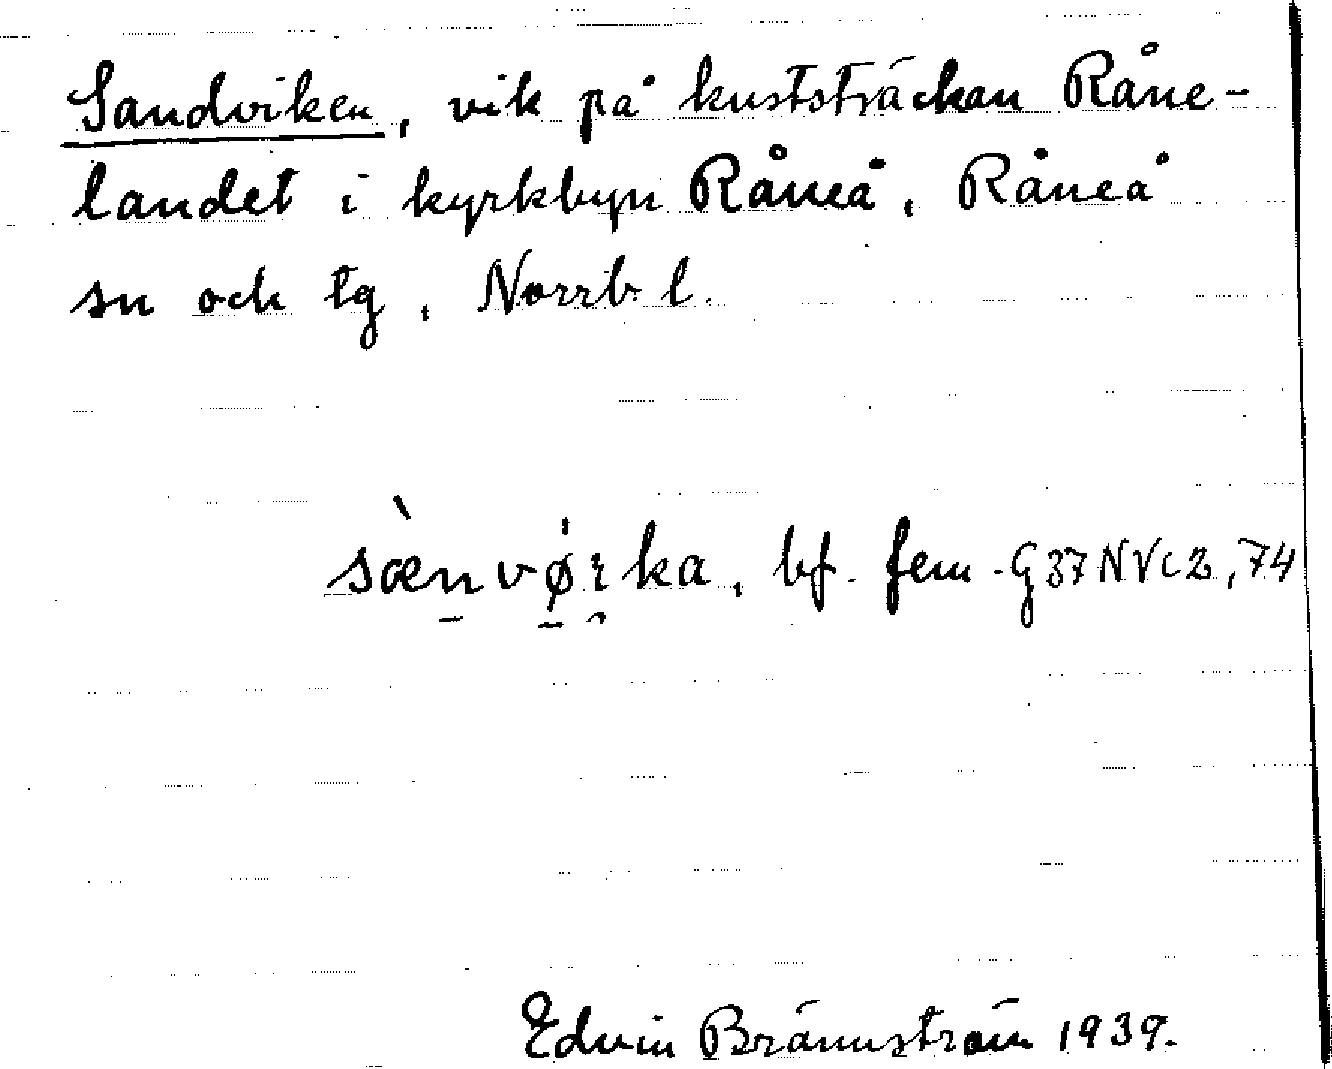 Sandviken, vik på kuststräckan Råne-
landet i kyrkbyn Råneå, Råneå
sn och tg, Norrb. l.
sæ̀nvø̍ı̯ka, bf. fem. G37NVc2,74
Edvin Brännström 1939.